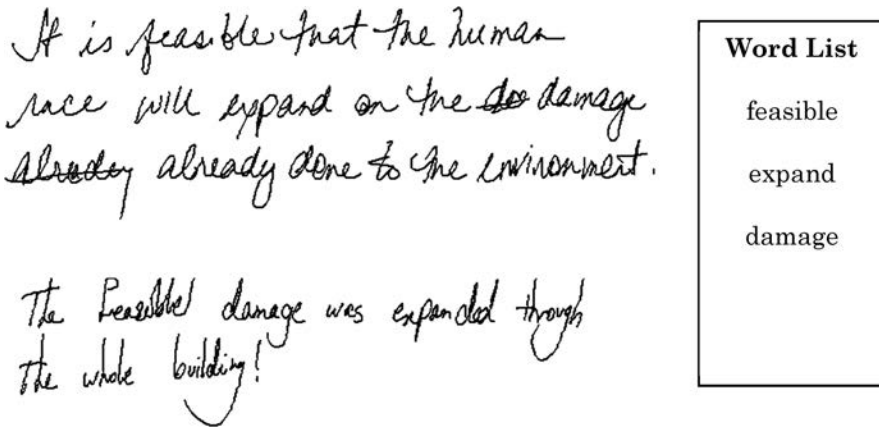 It is feasible that the human
race will expand on the do damage
alredey already done to the environment.
The feasible damage was expanded through
the whole building!
Word List
feasible
expand
damage